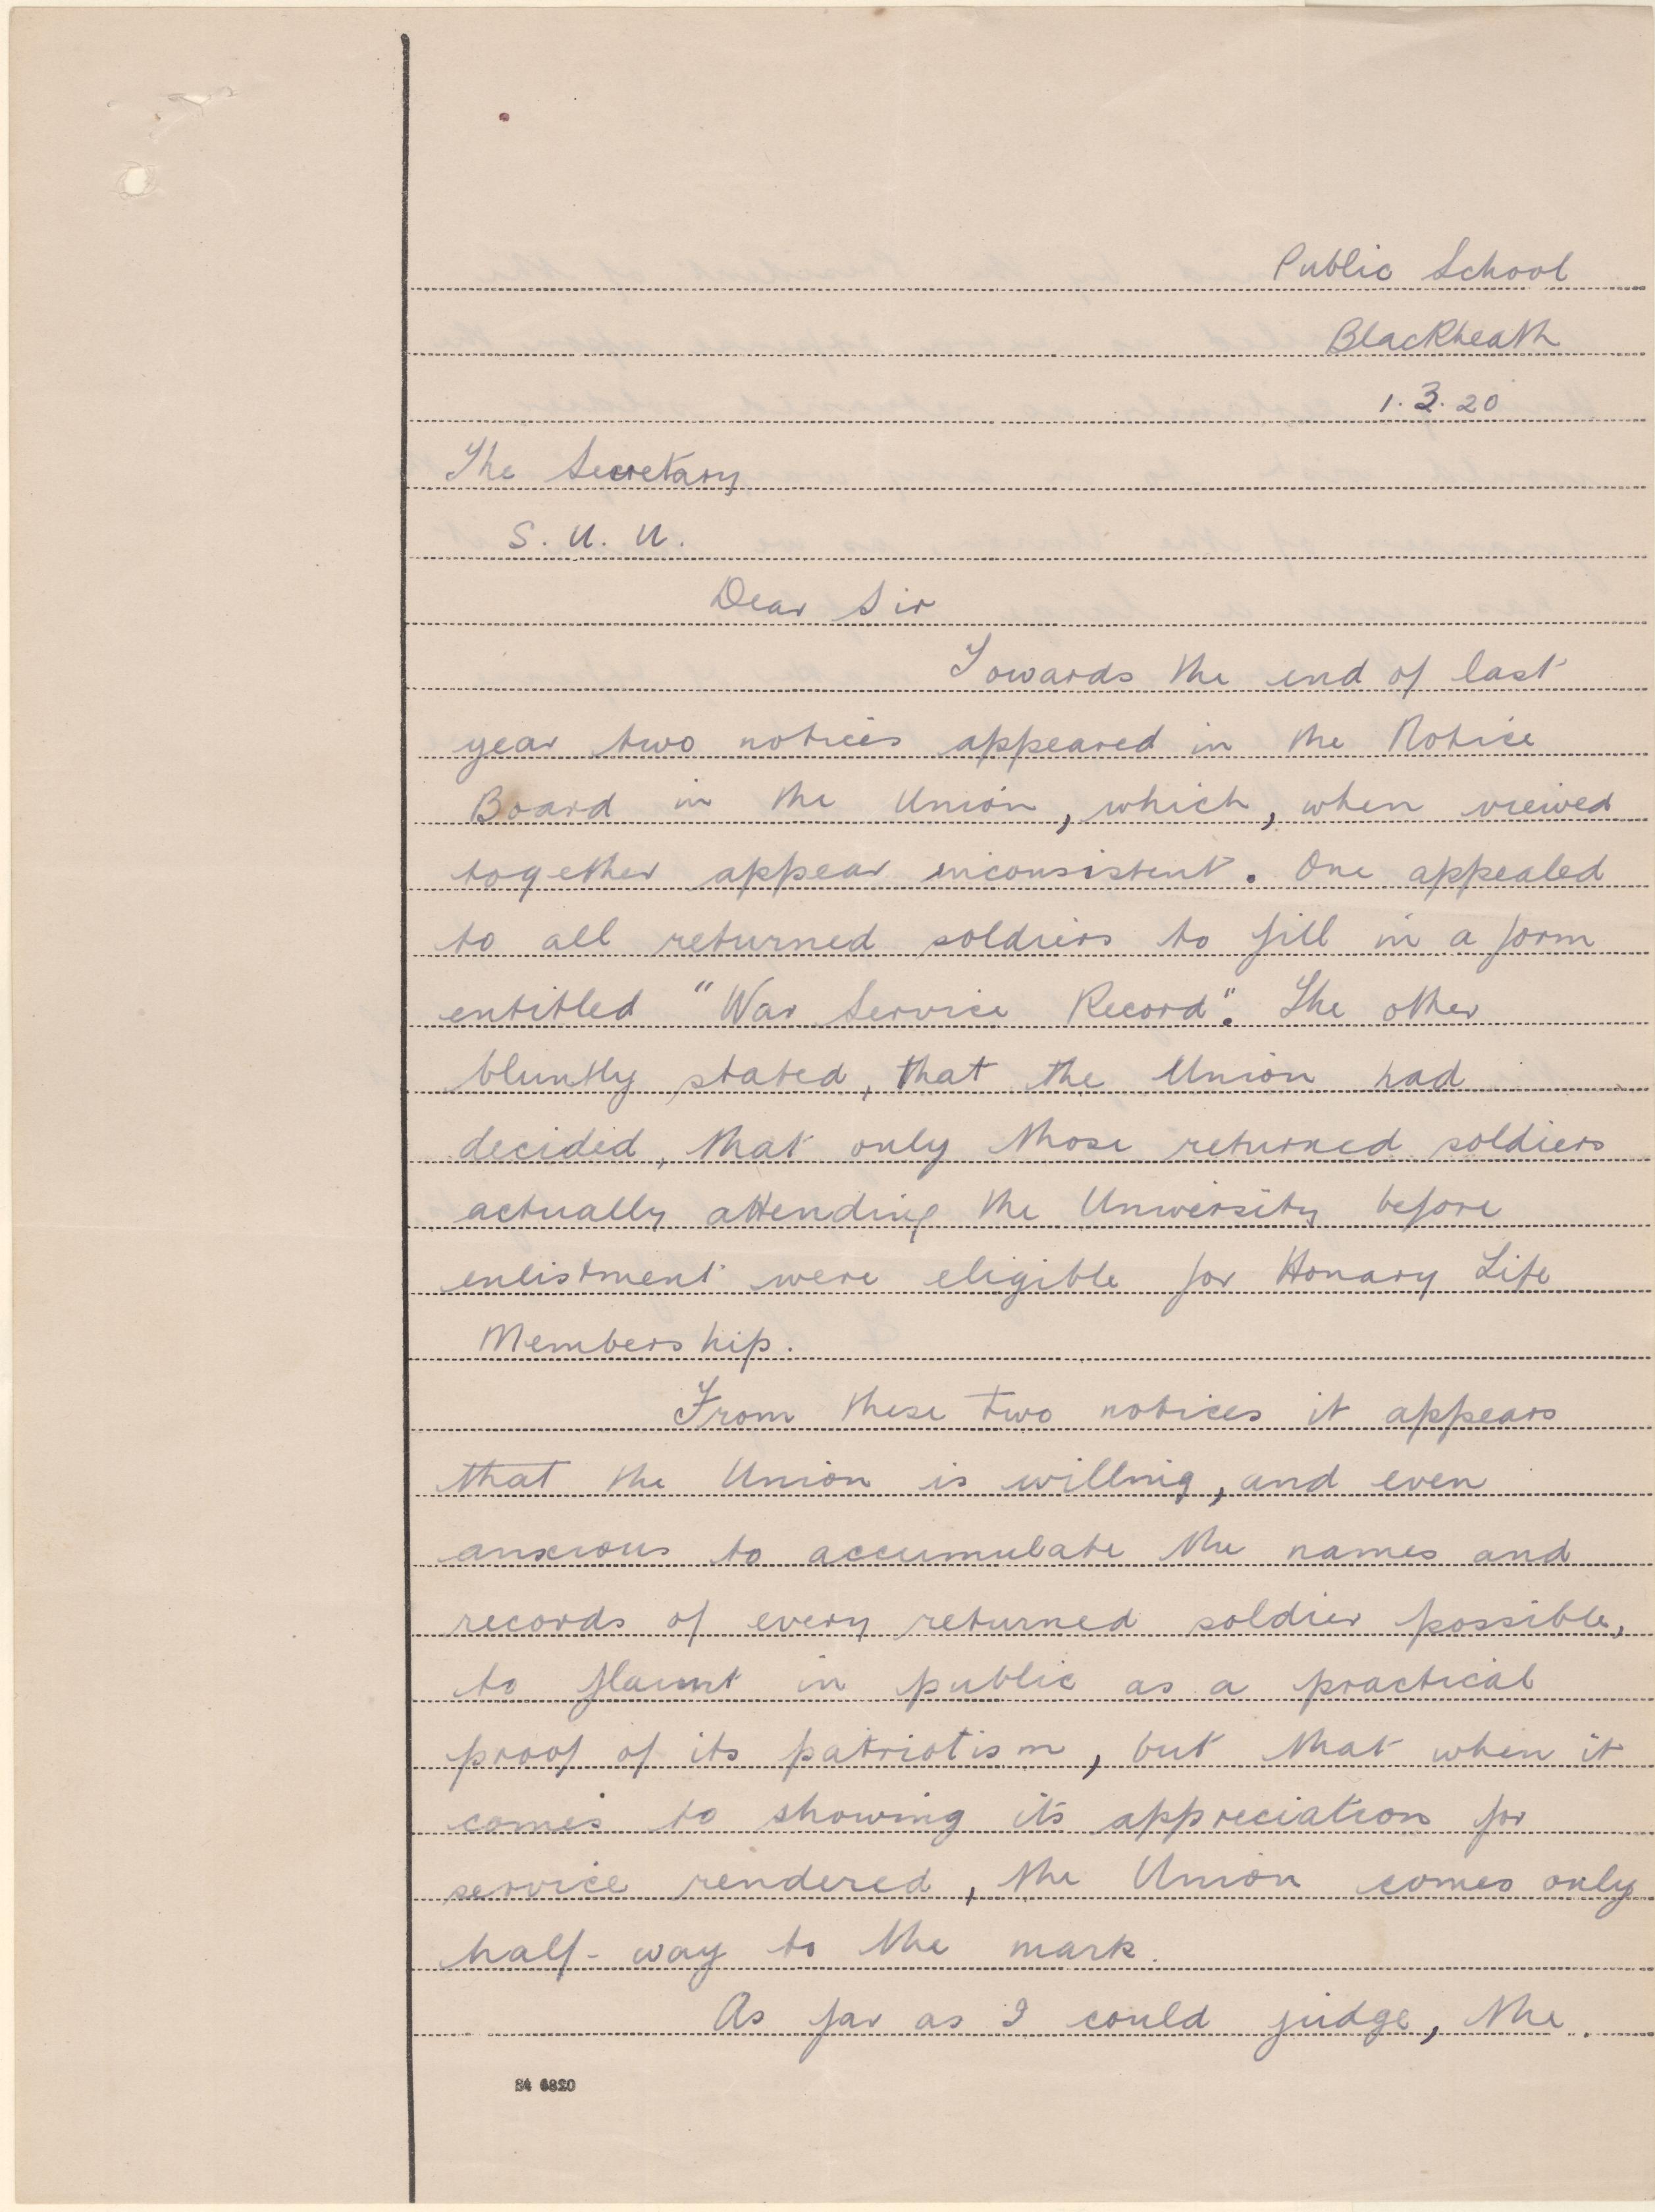 Public School
Blackheath
1.3.20
The Secretary
S. U. U.
Dear Sir
Towards the end of last
year two notices appeared in the Notice
Board in the Union, which, when viewed
together appear inconsistent. One appealed
to all returned soldiers to fill in a form
entitled "War Service Record". The other
bluntly stated, that the Union had
decided, that only those returned soldiers
actually attending the University before
enlistment were eligible for Honary Life
Membership.
From these two notices it appears
that the Union is willing, and even
anxious to accumulate the names and
records of every returned soldier possible,
to flaunt in public as a practical
proof of its patriotism, but that when it
comes to showing its appreciation for
service rendered, the Union comes only
half-way to the mark.
As far as I could judge, the
S4 6820